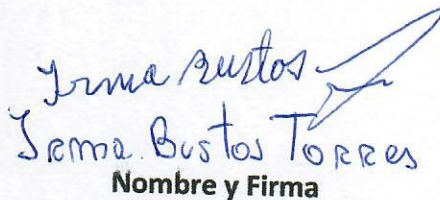 Irma Bustos
Irma. Bustos Torres
Nombre y Firma